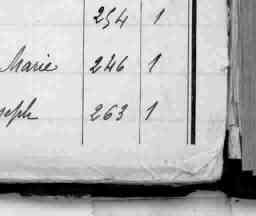 254 1
Marie 246 1
seph 263 1